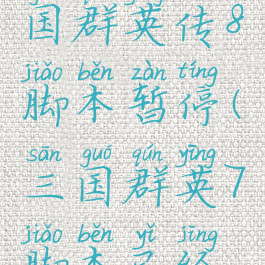 国群英传8
jiǎo běn zàn tíng
脚本暂停(
sān guó qún yīng
三国群英7
jiǎo běn yǐ jīng
脚本已经